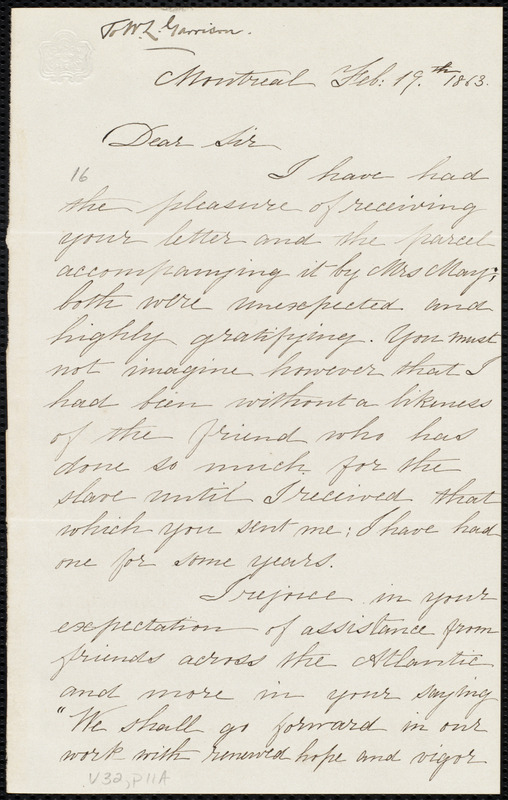 To W. L. Garrison.
Montreal Feb: 19.th 1863.
Dear Sir
16
I have had
the pleasure of receiving
your letter and the parcel
accompanying it by Mrs May;
both were unexpected and
highly gratifying. You must
not imagine however that I
had been without a likeness
of the friend who has
done so much for the
slave until I received that
which you sent me; I have had
one for some years.
I rejoice in your
expectation of assistance from
friends across the Atlantic
and more in your saying
"We shall go forward in our
work with renewed hope and vigor
V32, P11A